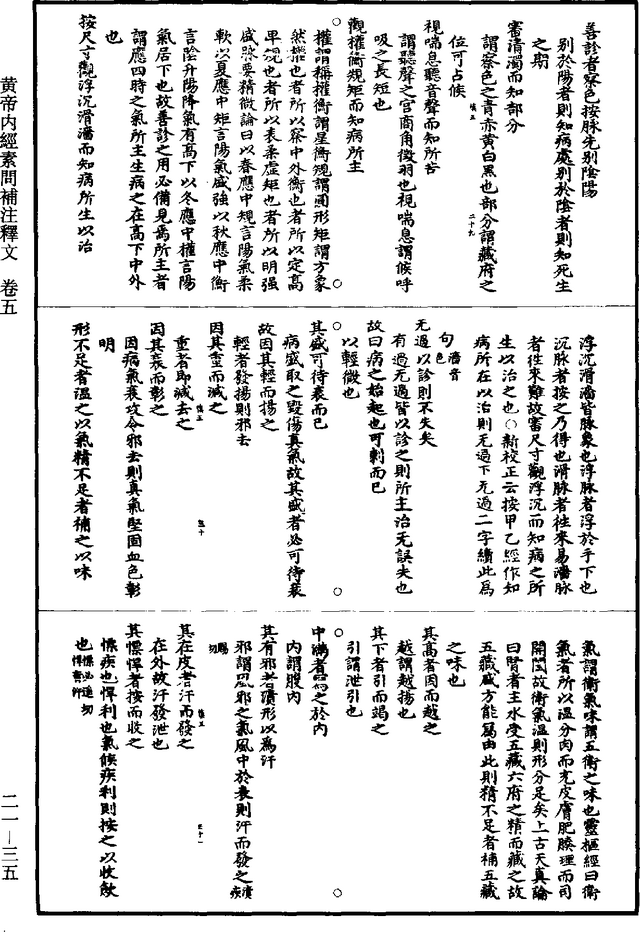 善診者察色按脉先别陰陽
别於陽者則知病處别於陰者則知死生
之期
審清濁而知部分
謂察色之青赤黄白黑也部分謂藏府之
位可占候
二十九
視喘息聽音聲而知所苦
謂聽聲之宫商角徵羽也視喘息謂候呼
吸之長短也
觀權衡規矩而知病所主
權謂稱權衡謂星衡規謂圓形矩謂方象
然權也者所以察中外衡也者所以定高
卑規也者所以表柔虚矩也者所以明强
盛脉要精微論曰以春應中規言陽氣柔
軟以夏應中矩言陽氣盛强以秋應中衡
言陰升陽降氣有高下以冬應中權言陽
氣居下也故善診之用必備見焉所主者
謂應四時之氣所主生病之在高下中外
也
按尺寸觀浮沉滑濇而知病所生以治
浮沉滑濇皆脉象也浮脉者浮於手下也
沉脉者按之乃得也滑脉者往來易濇脉
者往來難故審尺寸觀浮沉而知病之所
生以治之也○新校正云按甲乙經作知
病所在以治則无過下无過二字續此爲
句濇音色
无過以診則不失矣
有過无過皆以診之則所主治无誤失也
故曰病之始起也可刺而已
以輕微也
其盛可待衰而已
病盛取之毁傷真氣故其盛者必可待衰
故因其輕而揚之
輕者發揚則邪去
因其重而減之
重者即減去之
三十
因其衰而彰之
因病氣衰攻令邪去則真氣堅固血色彰
明
形不足者温之以氣精不足者補之以味
氣謂衛氣味謂五藏之味也靈樞經曰衛
氣者所以温分肉而充皮膚肥腠理而司
開闔故衛氣温則形分足矣上古天真論
曰腎者主水受五藏六府之精而藏之故
五藏盛方能寫由此則精不足者補五藏
之味也
其高者因而越之
越謂越揚也
其下者引而竭之
引謂泄引也
中滿者寫之於内
内謂腹内
其有邪者漬形以爲汗
邪謂風邪之氣風中於表則汗而發之
其在皮者汗而發之
三十一
在外故汗發泄也
其慓悍者按而收之
慓疾也悍利也氣候疾利則按之以收斂
也
黄帝内經素問補注釋文 卷五
二一—三五